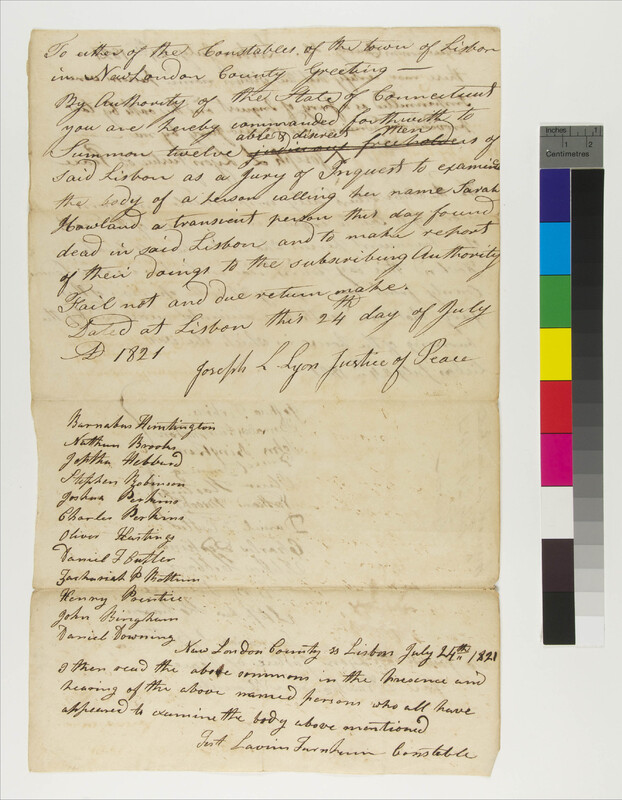 To either of the Constables of the town of Lisbon
in New London County Greeting —
By Authority of the State of Connecticut
you are hereby commanded forthwith to
able & discreet Men
Summon twelve judicious freeholders of
said Lisbon as a Jury of Inquest to examine
the body of a person calling her name Sarah
Howland a transient person this day found
dead in said Lisbon and to make report
of their doings to the subscribing Authority
Fail not and due return make.
Dated at Lisbon this 24th day of July
AD 1821
Joseph L Lyon Justice of Peace
Barnabas Huntington
Nathan Brooks
Jeptha Hebbard
Stephen Robinson
Joshua Perkins
Charles Perkins
Oliver Hastings
Daniel F Cutler
Zachariah P Bottum
Henry Prentice
John Bingham
Daniel Downing
New London County ss Lisbon July 24th 1821
I then read the above summons in the presence and
hearing of the above named persons who all have
appeared to examine the body above mentioned
Test Farnham Constable
Inches 1
1 2
Centimetres